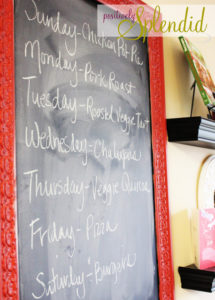 positively
Splendid
Sunday - Chicken Pot Pie
Monday - Pork Roast
Tuesday - Roasted Veggie Tart
Wednesday - Chalupas
Thursday - Veggie Quinoa
Friday - Pizza
Saturday - Burgers